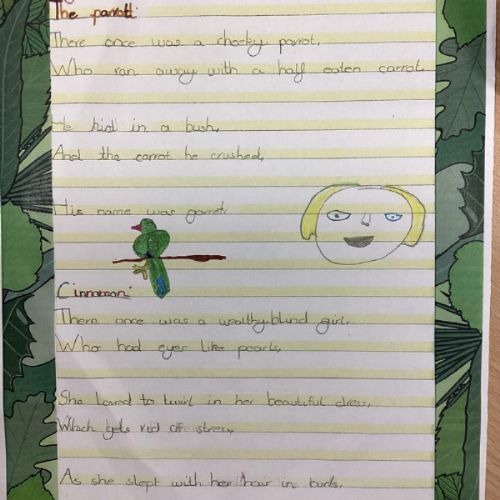 The parrot
There once was a cheeky parrot,
Who ran away with a half eaten carrot.
He hid in a bush,
And the carrot he crushed,
His name was garret.
Cinnamon
There once was a wealthy blind girl,
Who had eyes like pearls,
She loved to twirl in her beautiful dress,
Which gets rid of stress,
As she slept with her hair in curls.